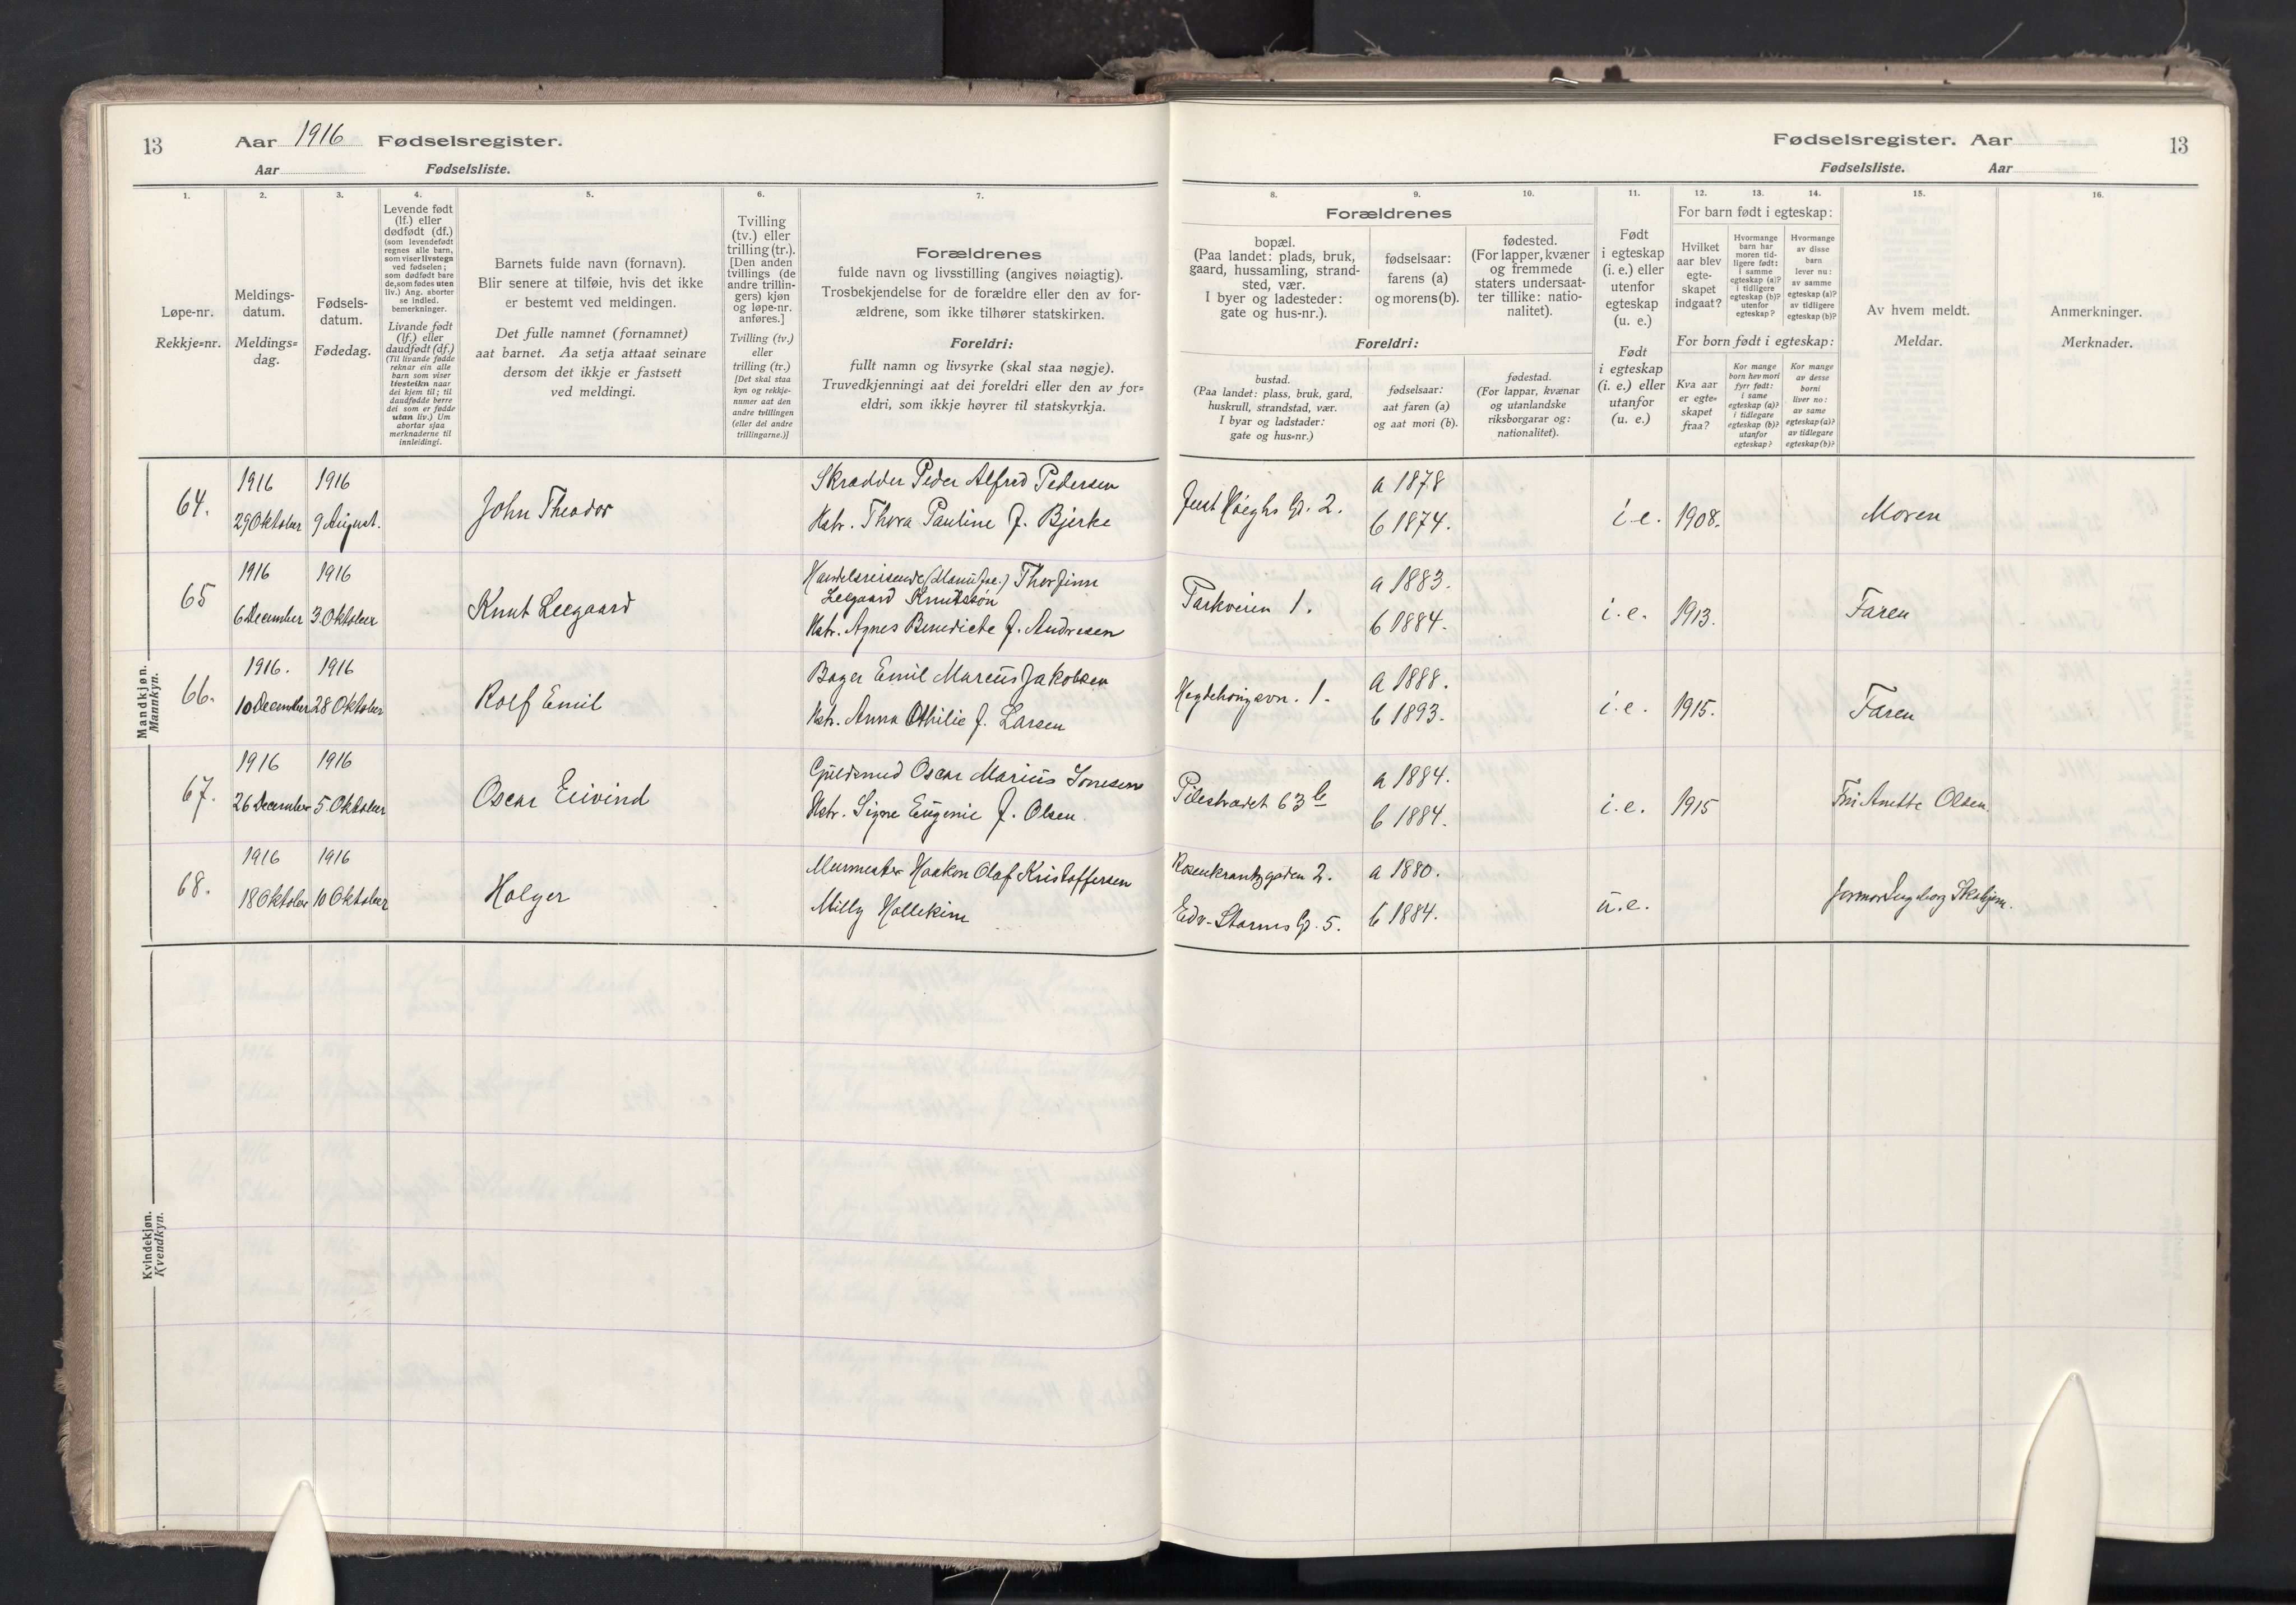 13
Aar 1916 Fødselsregister.
Aar Fødselsliste.
1.
2.
3.
4.
5.
6.
7.
Løpe-nr.
Rekkje=nr.
Meldings-
datum.
Meldings=
dag.
Fødsels-
datum.
Fødedag.
Levende født
(lf.) eller
dødfødt (df.)
(som levendefødt
regnes alle barn,
som viser livstegn
ved fødselen;
som dødfødt bare
de, som fødes uten
liv.) Ang. aborter
se indled.
bemerkninger.
Livande født
(lf.) eller
daudfødt (df.)
(Til livande fødde
reknar ein alle
barn som viser
livsteikn naar
dei kjem til; til
daudfødde berre
dei som er fødde
utan liv.) Um
abortar sjaa
merknaderne til
innleidingi.
Barnets fulde navn (fornavn).
Blir senere at tilføie, hvis det ikke
er bestemt ved meldingen.
Det fulle namnet (fornamnet)
aat barnet. Aa setja attaat seinare
dersom det ikkje er fastsett
ved meldingi.
Tvilling
(tv.) eller
trilling (tr.).
[Den anden
tvillings (de
andre trillin-
gers) kjøn
og løpe-nr.
anføres.]
Tvilling (tv.)
eller
trilling (tr.)
[Det skal staa
kyn og rekkje-
numer aat den
andre tvillingen
(eller dei andre
trillingarne.)]
Forældrenes
fulde navn og livsstilling (angives nøiagtig).
Trosbekjendelse for de forældre eller den av for-
ældrene, som ikke tilhører statskirken.
Foreldri:
fullt namn og livsyrke (skal staa nøgje).
Truvedkjenningi aat dei foreldri eller den av for=
eldri, som ikkje høyrer til statskyrkja.
Mandkjøn.
Mannkyn.
64.
1916
29 Oktober
1916
9 August.
John Theodor
Skrædder Peder Alfred Pedersen
Hstr. Thora Pauline f. Bjerke
65
1916
6 December
1916
3. Oktober
Knut Leegaard
Handelsreisende (Manufac.) Thorfinn
Leegaard Knutssøn
Hstr. Agnes Benedicte f. Andresen
66.
1916.
10 December
1916
28 Oktober
Rolf Emil
Bager Emil Marcus Jakobsen
Hstr. Anna Othilie f. Larsen
67.
1916
26 December
1916
5. Oktober
Oscar Eivind
Guldsmed Oscar Marius
Hstr. Signe Eugenie f. Olsen.
68.
1916
18 Oktober
1916
10 Oktober
Holger
Murmester Haakon Olaf Kristoffersen
Milly
Kvindekjøn.
Kvendkyn.
Fødselsregister. Aar
13
Fødselsliste. Aar
8.
9.
10.
11.
12.
13.
14.
15.
16.
Forældrenes
bopæl.
(Paa landet: plads, bruk,
gaard, hussamling, strand-
sted, vær.
I byer og ladesteder:
gate og hus-nr.).
fødselsaar:
farens (a)
og morens (b).
fødested.
(For lapper, kvæner
og fremmede
staters undersaat-
ter tillike: natio-
nalitet).
Foreldri:
bustad.
(Paa landet: plass, bruk, gard,
huskrull, strandstad, vær.
I byar og ladstader:
gate og hus=nr.)
fødselsaar:
aat faren (a)
og aat mori (b).
fødestad.
(For lappar, kvænar
og utanlandske
riksborgarar og:
nationalitet).
Født
i egteskap
(i. e.) eller
utenfor
egteskap
(u. e.)
Født
i egteskap
(i. e.) eller
utanfor
(u. e.)
For barn født i egteskap:
Hvilket
aar blev
egte-
skapet
indgaat?
Hvormange
barn har
moren tid-
ligere født:
i samme
egteskap (a)?
i tidligere
egteskap (b)?
utenfor
egteskap?
Hvormange
av disse
barn
lever nu:
av samme
egteskap (a)?
av tidligere
egteskap (b)?
For born født i egteskap:
Kva aar
er egte=
skapet
fraa?
Kor mange
born hev mori
fyrr født:
i same
egteskap (a)?
i tidlegare
egteskap (b)?
utanfor
egteskap?
Kor mange
av desse
borni
liver no:
av same
egteskap (a)?
av tidlegare
egteskap (b)?
Av hvem meldt.
Meldar.
Anmerkninger.
Merknader.
Just Høeghs G. 2.
a 1878
b 1874.
i. e.
1908.
Moren
Parkveien 1.
a 1883.
b 1884.
i. e.
1913.
Faren
Hegdehougsvn. 1.
a 1888.
b 1893.
i. e.
1915.
Faren
Pilestrædet 63 b
a 1884.
b 1884.
i. e.
1915
Anette Olsen.
Rosenkrantzgaden 2.
Edv. Storms G. 5.
a 1880.
b 1884.
u. e.
Jormor Ingeborg